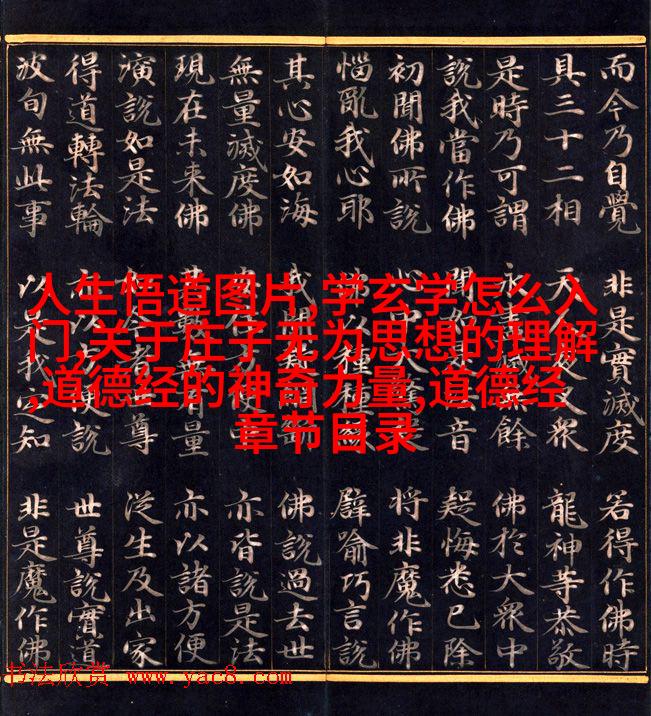 而今乃自覺 非是實滅度 若得作佛時
具三十二相 天人夜叉眾 龍神等恭敬
是時乃可謂 永盡滅無餘 佛於大眾中
說我當作佛 聞 音 疑悔悉已除
初聞佛所說 心 大 將非魔作佛
惱亂我心耶 佛以種種 譬喻巧言說
其心安如海 我聞 佛說過去世
無量滅度佛 安 方便 亦皆說是法
現在未來佛 其數 有量 亦以諸方便
演說如是法 者 尊 從生及出家
得道轉法輪 亦以方便說 世尊說實道
波旬無此事 以是我定知 非是魔作佛
人生悟道图片,学玄学怎么入
门,关于庄子无为思想的理解
,道德经的神奇力量,道德经
章节目录
书法欣赏 www.yac8.com